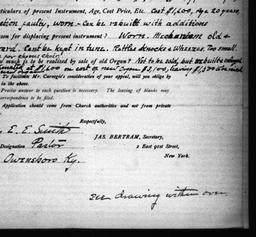 ticulars of present Instrument, Age, Cost Price, Etc. Cost $1,600, Age 20 years
action faulty, worn - Can be rebuilt with additions
son for displacing present instrument? Worn. Mechanism old &
Can't be kept in tune. Rattles knocks & Wheezes. Too small.
much is to be realized by sale of old Organ? Not to be sold, but rebuilt
To facilitate Mr. Carnegie's consideration of your appeal, will you oblige
Precise answer to each question is necessary. The leaving of blanks may
correspondence to be filed.
Application should come from Church authorities and not from private
Respectfully,
E. E. Smith
JAS. BERTRAM, Secretary,
Designation Pastor
2 East 91st Street,
Owensboro Ky.
New York.
see drawing within over